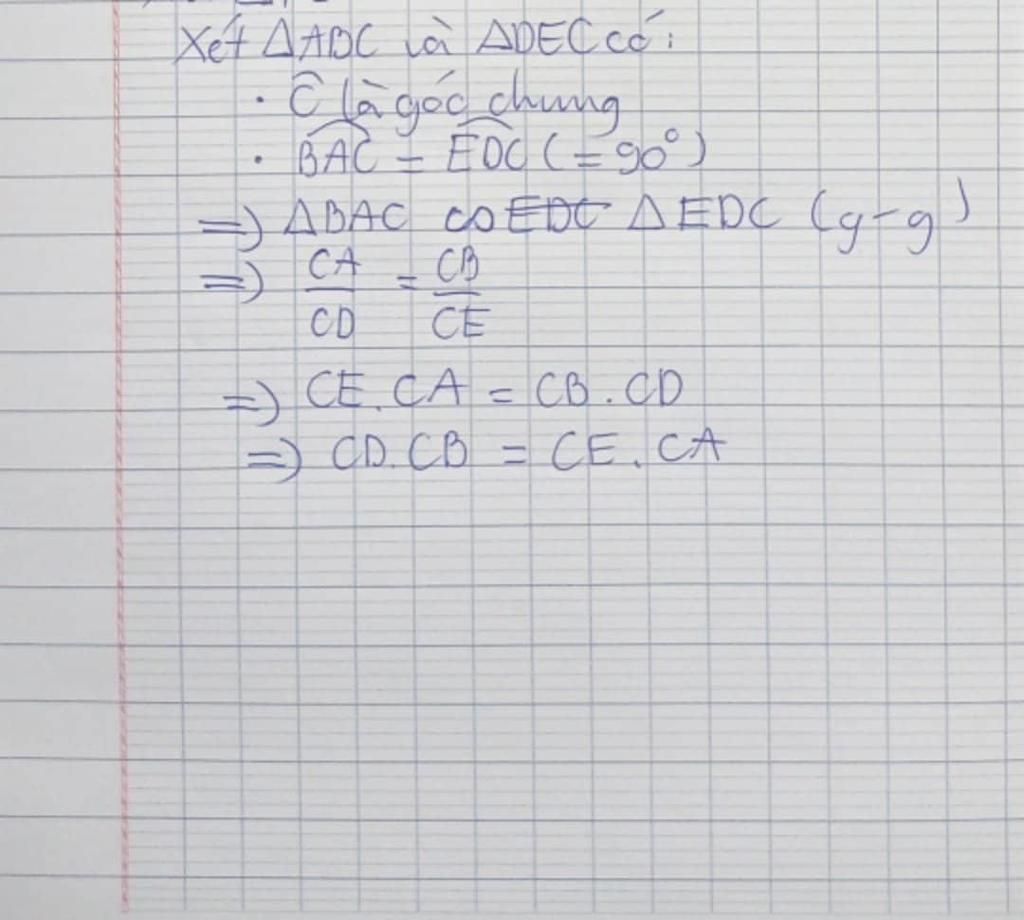 Xét ΔABC và ΔDEC có:
· Ĉ là góc chung
· BAC = EDC (= 90°)
=) ΔBAC ∽ EDC ΔEDC (g-g)
=) CA/CD = CB/CE
=) CE.CA = CB.CD
=) CD.CB = CE.CA